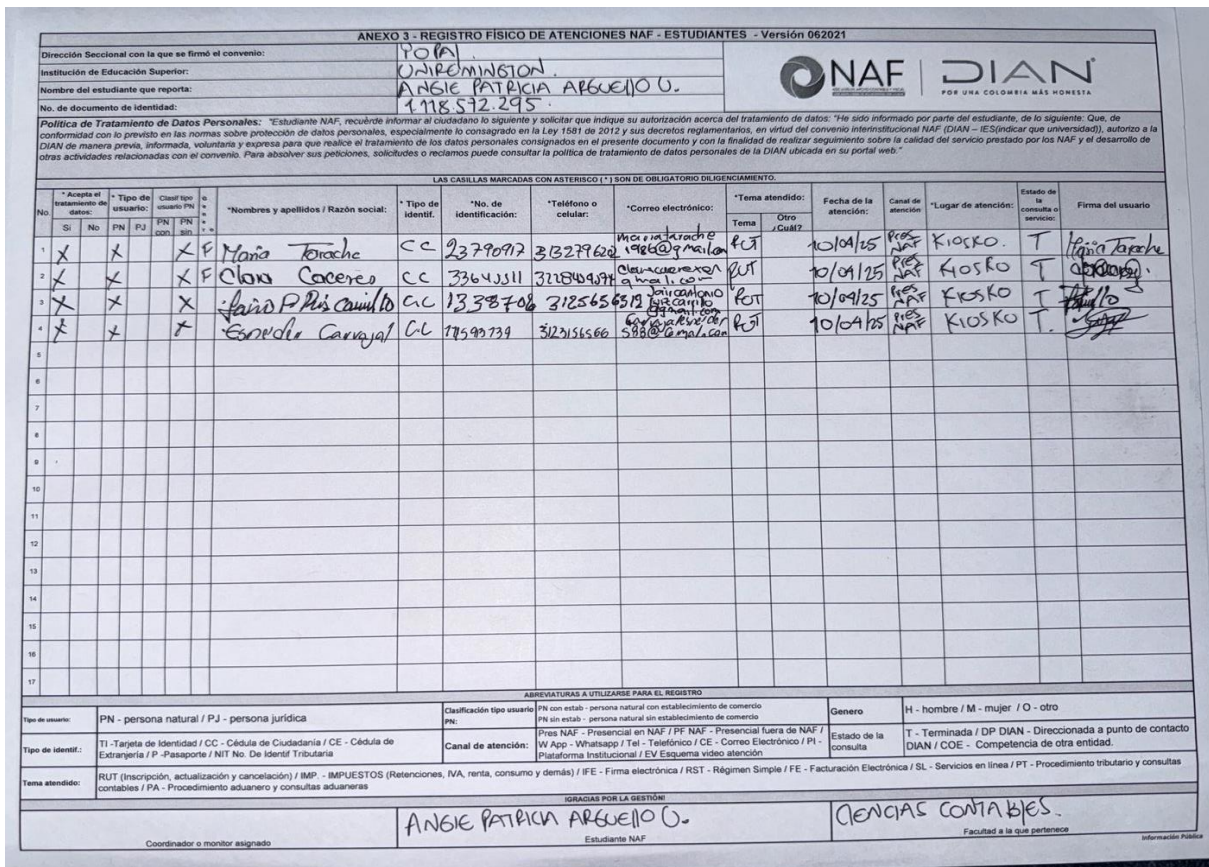 ANEXO 3 - REGISTRO FÍSICO DE ATENCIONES NAF - ESTUDIANTES - Versión 062021
Dirección Seccional con la que se firmó el convenio: YOPAL
Institución de Educación Superior: UNIREMINGTON.
Nombre del estudiante que reporta: ANGIE PATRICIA ARGUELLO U.
No. de documento de identidad: 1.118.572.295.
NAF DIAN
POR UNA COLOMBIA MÁS HONESTA
Política de Tratamiento de Datos Personales: "Estudiante NAF, recuérde informar al ciudadano lo siguiente y solicitar que indique su autorización acerca del tratamiento de datos: "He sido informado por parte del estudiante, de lo siguiente: Que, de
conformidad con lo previsto en las normas sobre protección de datos personales, especialmente lo consagrado en la Ley 1581 de 2012 y sus decretos reglamentarios, en virtud del convenio interinstitucional NAF (DIAN – IES(indicar que universidad)), autorizo a la
DIAN de manera previa, informada, voluntaria y expresa para que realice el tratamiento de los datos personales consignados en el presente documento y con la finalidad de realizar seguimiento sobre la calidad del servicio prestado por los NAF y el desarrollo de
otras actividades relacionadas con el convenio. Para absolver sus peticiones, solicitudes o reclamos puede consultar la política de tratamiento de datos personales de la DIAN ubicada en su portal web."
LAS CASILLAS MARCADAS CON ASTERISCO ( * ) SON DE OBLIGATORIO DILIGENCIAMIENTO.
No. * Acepta el tratamiento de datos: Si No * Tipo de usuario: PN PJ Clasif tipo usuario PN PN con PN sin *Nombres y apellidos / Razón social: * Tipo de identif. *No. de identificación: *Teléfono o celular: *Correo electrónico: *Tema atendido: Tema Otro ¿Cuál? Fecha de la atención: Canal de atención *Lugar de atención: Estado de la consulta o servicio: Firma del usuario
1 X X X F Maria Tarache CC 23790917 313279620 mariatarache1986@gmail.com RUT 10/04/25 Pres NAF KIOSKO. T Maria Tarache
2 X X X F Clara Caceres CC gmail.com RUT 10/04/25 Pres NAF KIOSKO T
3 X X X C.C 13338708 3125656319 RUT 10/04/25 Pres NAF KIOSKO T
4 X X X Carvajal C.C 3123156566 588@Gmail.com RUT 10/04/25 Pres NAF KIOSKO T.
5
6
7
8
9
10
11
12
13
14
15
16
17
ABREVIATURAS A UTILIZARSE PARA EL REGISTRO
Tipo de usuario: PN - persona natural / PJ - persona jurídica
Clasificación tipo usuario PN: PN con estab - persona natural con establecimiento de comercio
PN sin estab - persona natural sin establecimiento de comercio
Genero H - hombre / M - mujer / O - otro
Tipo de identif.: TI -Tarjeta de Identidad / CC - Cédula de Ciudadanía / CE - Cédula de
Extranjería / P -Pasaporte / NIT No. De Identif Tributaria
Canal de atención: Pres NAF - Presencial en NAF / PF NAF - Presencial fuera de NAF /
W App - Whatsapp / Tel - Telefónico / CE - Correo Electrónico / PI -
Plataforma Institucional / EV Esquema video atención
Estado de la consulta T - Terminada / DP DIAN - Direccionada a punto de contacto
DIAN / COE - Competencia de otra entidad.
Tema atendido: RUT (Inscripción, actualización y cancelación) / IMP. - IMPUESTOS (Retenciones, IVA, renta, consumo y demás) / IFE - Firma electrónica / RST - Régimen Simple / FE - Facturación Electrónica / SL - Servicios en línea / PT - Procedimiento tributario y consultas
contables / PA - Procedimiento aduanero y consultas aduaneras
¡GRACIAS POR LA GESTIÓN!
ANGIE PATRICIA ARGUELLO U.
CIENCIAS CONTABLES.
Coordinador o monitor asignado
Estudiante NAF
Facultad a la que pertenece
Información Pública